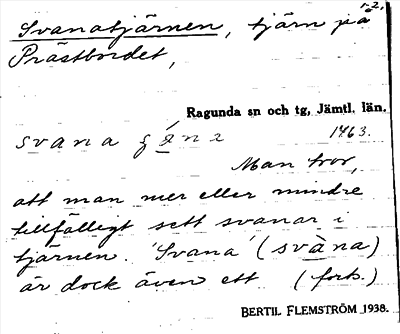 Svanatjärnen, tjärn på
Prästbordet,
Ragunda sn och tg, Jämtl. län.
svana
1463.
Man tror,
att man mer eller mindre
tillfälligt sett svanar i
tjärnen. 'Svana' (svàna)
är dock även ett (forts.)
BERTIL FLEMSTRÖM 1938.